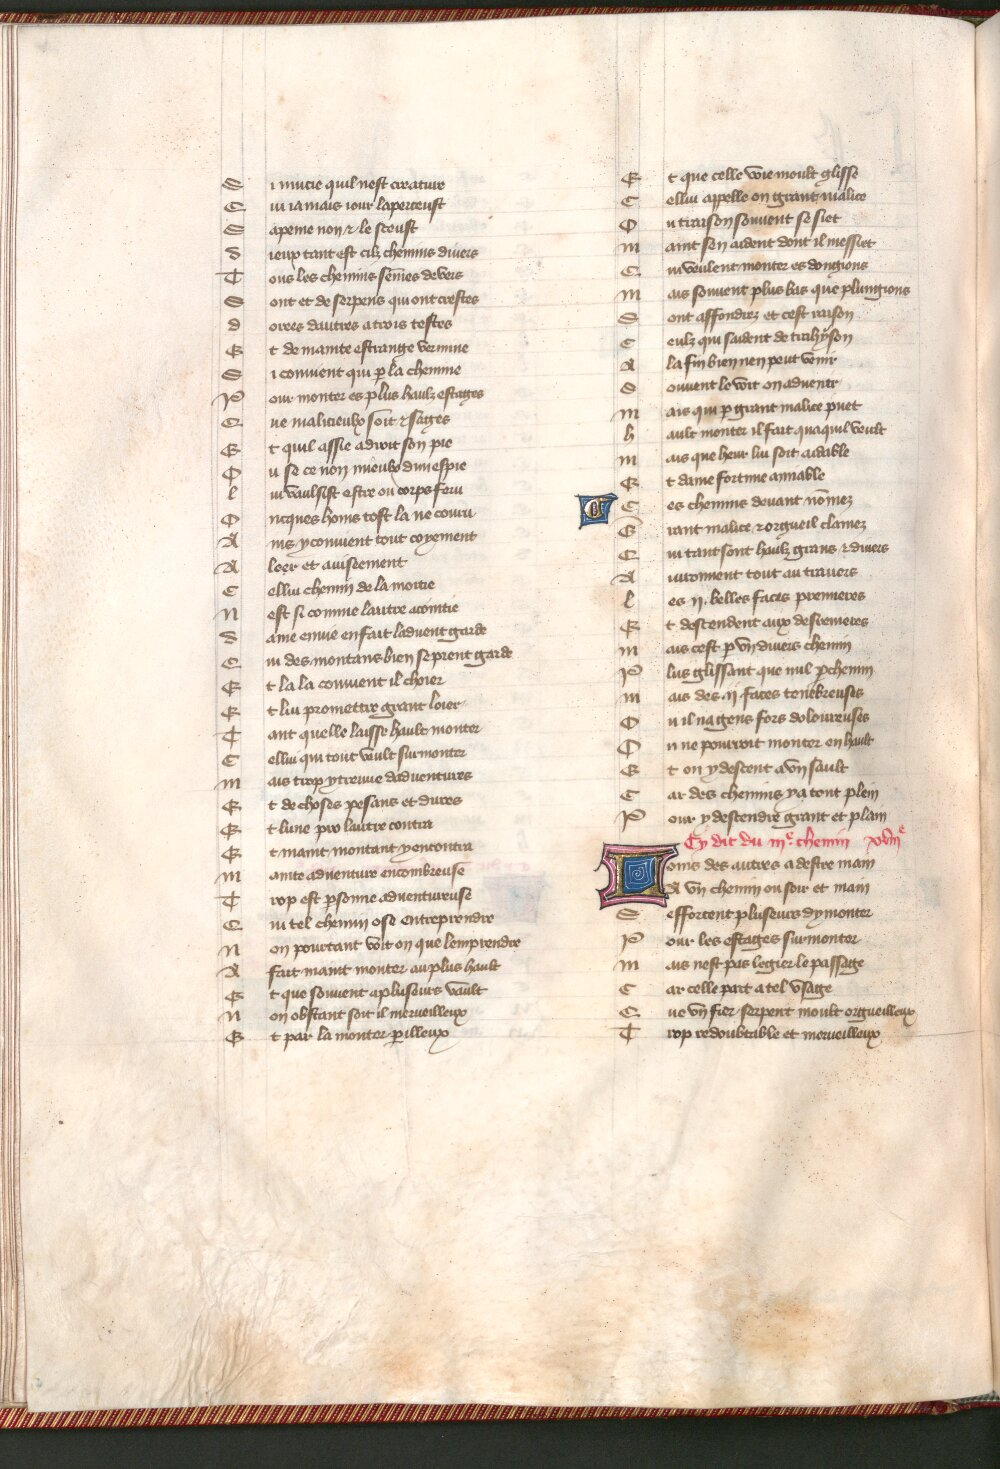 S i nuitie quil nest creature
C ui iamais iour lapercust
S apeine non & le sceust
d ieux tant est cilz chemins divers
T ous les chemins semes devers
S ont et de serpens qui ont crestes
d orees dautres a trois testes
E t de mainte estrange vermine
S i convient qui p la chemine
P our monter es plus haulz estages
Q ue malicieux soit & sages
E t quil assie adroit son pie
O u se ce non mieulx dun espie
l ui vaulsist estre ou corps feru
O ncques homs tost la ne couru
A ins y convient tout coyement
A leer et aviseement
C ellui chemin de la moitie
N est si comme lautre acointie
d ame envie en fait ladvent garde
Q ui des montans bien se prent garde
E t la la convient il choier
E t lui promettre grant loier
T ant quelle laisse hault monter
C ellui qui tout veult surmonter
m ais trop y treuve dadventures
E t de choses pesans et dures
E t lune pro lautre contra
E t maint montant y encontra
m ainte adventure encombreuse
T rop est psonne adventureuse
Q ui tel chemin ose entreprendre
N on pourtant voit on que lemprendre
A fait maint monter au plus hault
E t que souvent a pluseurs vault
N on obstant soit il merveilleux
E t par la monter pilleux
E t que celle voie moult glisse
C ellui appelle on grant malice
O u traison souvent se siet
m aint sen aident dont il messiet
Q ui veulent monter es dongions
m ais souvent plus bas que plungions
S ont affondrez et cest raison
C eulz qui saident de trahyson
A la fin bien nen peut venir
S ouvent le voit on advenir
m ais qui p grant malice puet
h ault monter il fait quaquil veult
m ais que heur lui soit aidable
E t dame fortune amiable
C es chemins devant nomez
G rant malice & orgueil clamez
Q ui tant sont haulz grans & divers
A vironnent tout au travers
l es .ii. belles faces premieres
E t descendent aux derrenieres
m ais cest p un divers chemin
P lus glissant que nul pchemin
m ais des .ii. faces tenebreuses
O u il na gens fors doloureuses
O n ne pourroit monter en hault
E t on y descent a un sault
C ar des chemins y a tout plein
P our y descendre grant et plain
Cy dit du iiiᵉ chemin xviiiᵉ
L oins des autres a destre main
A un chemin ou soir et main
S efforcent pluseurs dy monter
P our les estages surmonter
m ais nest pas legier le passage
C ar celle part a tel usage
Q ue un fier serpent moult orgueilleux
T rop redoubtable et merveilleux